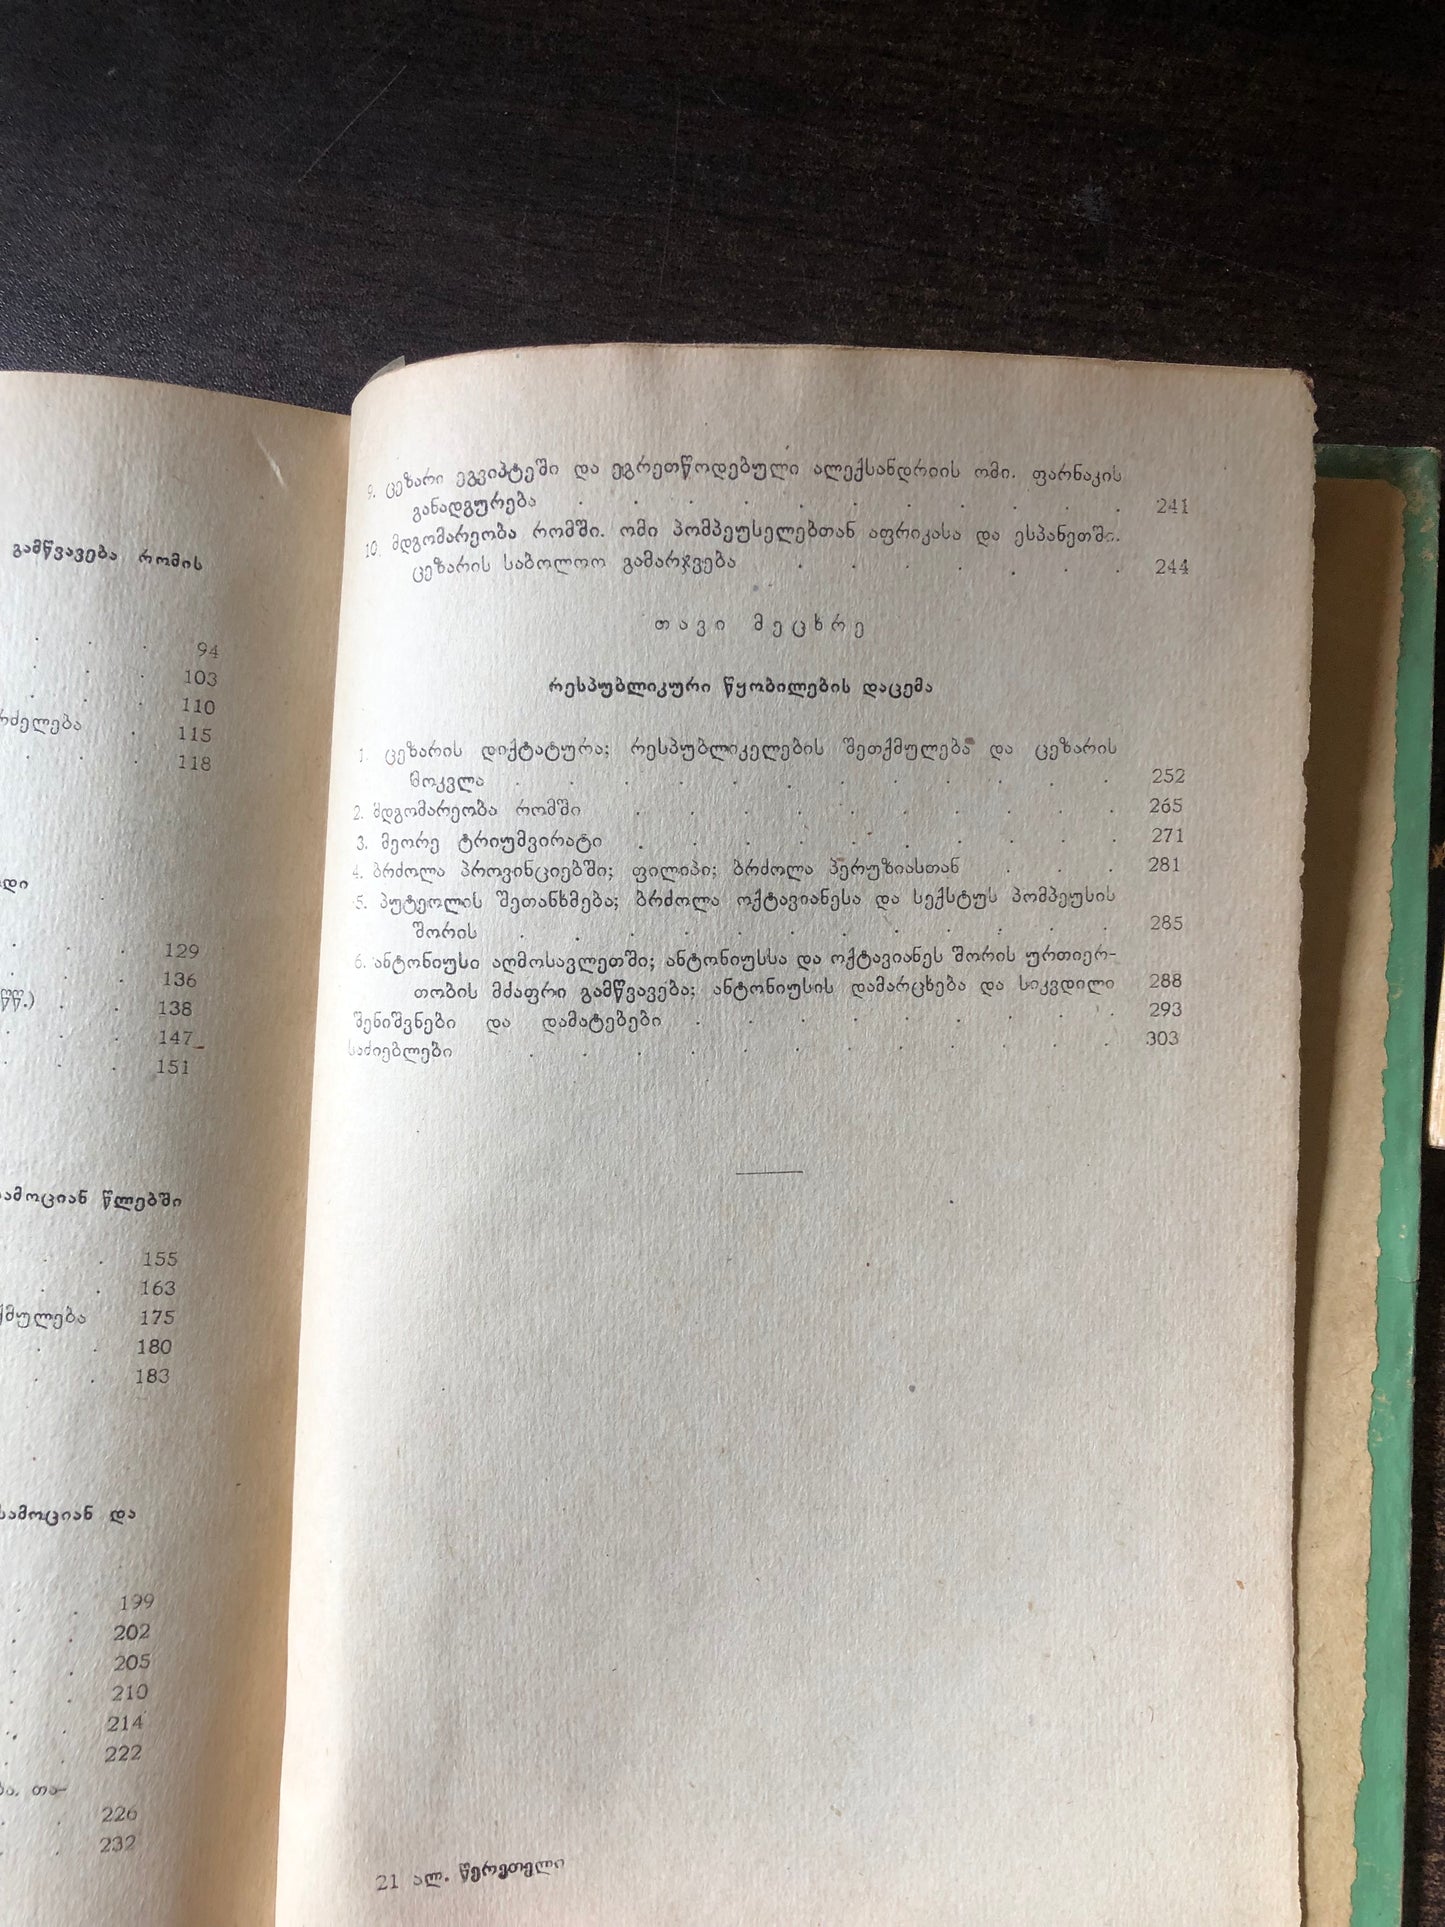 გამწვავება რომის
94
103
110
115
118
129
136
138
147
151
წლებში
155
163
175
180
183
და
199
202
205
210
214
222
226
232
9. ცეზარი ეგვიპტეში და ეგრეთწოდებული ალექსანდრიის ომი. ფარნაკის
განადგურება . . . . . . . . . . . 241
10. მდგომარეობა რომში. ომი პომპეუსელებთან აფრიკასა და ესპანეთში.
ცეზარის საბოლოო გამარჯვება . . . . . . . 244
თავი მეცხრე
რესპუბლიკური წყობილების დაცემა
1. ცეზარის დიქტატურა; რესპუბლიკელების შეთქმულება და ცეზარის
მოკვლა . . . . . . . . . . . . 252
2. მდგომარეობა რომში . . . . . . . . . . 265
3. მეორე ტრიუმვირატი . . . . . . . . . . 271
4. ბრძოლა პროვინციებში; ფილიპი; ბრძოლა პერუზიასთან . . . 281
5. პუტეოლის შეთანხმება; ბრძოლა ოქტავიანესა და სექსტუს პომპეუსის
შორის . . . . . . . . . . . . 285
6. ანტონიუსი აღმოსავლეთში; ანტონიუსსა და ოქტავიანეს შორის ურთიერ-
თობის მძაფრი გამწვავება; ანტონიუსის დამარცხება და სიკვდილი 288
შენიშვნები და დამატებები . . . . . . . . . 293
საძიებლები . . . . . . . . . . . . 303
21 ალ. წერეთელი